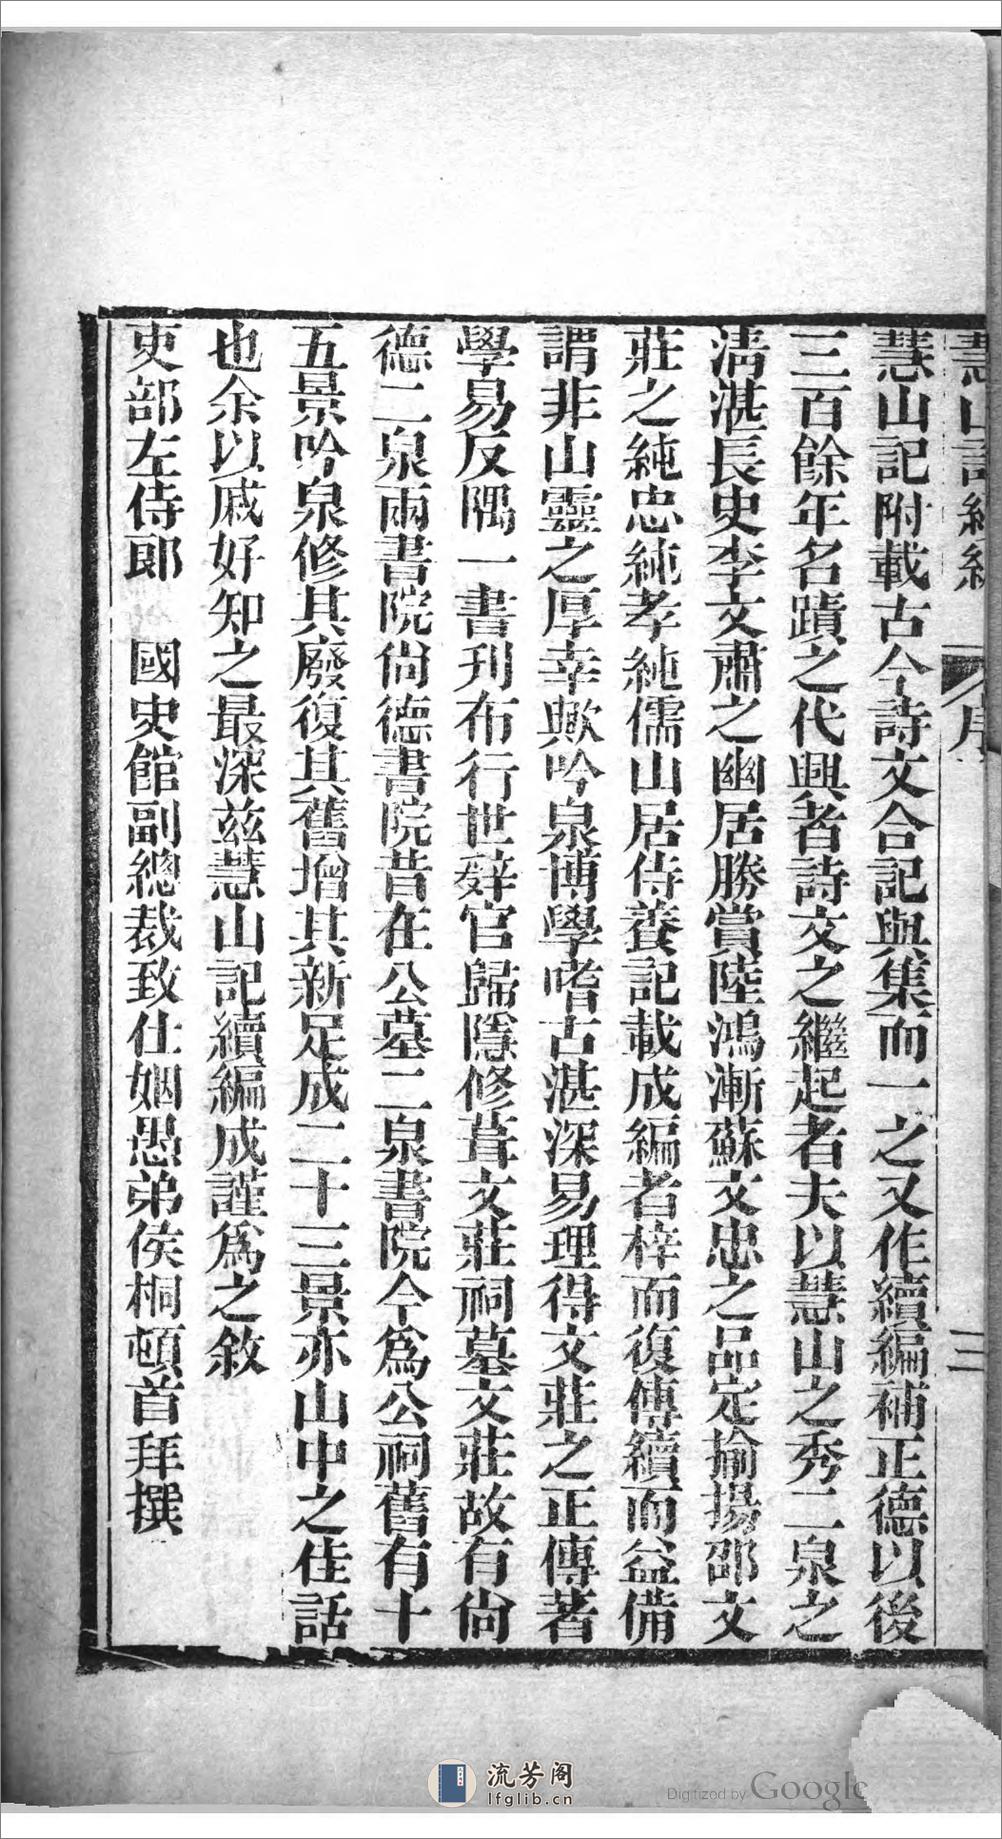 慧山記續編
序
三
慧山記附載古今詩文合記與集而一之又作續編補正德以後
三百餘年名蹟之代興者詩文之繼起者夫以慧山之秀二泉之
淸湛長史李文肅之幽居勝賞陸鴻漸蘇文忠之品定揄揚邵文
莊之純忠純孝純儒山居侍養記載成編者梓而復傳續而益備
謂非山靈之厚幸歟吟泉博學嗜古湛深易理得文莊之正傳著
學易反隅一書刊布行世辤官歸隱修葺文莊祠墓文莊故有尙
德二泉兩書院尙德書院昔在公墓二泉書院今爲公祠舊有十
五景吟泉修其廢復其舊增其新足成二十三景亦山中之佳話
也余以戚好知之最深茲慧山記續編成謹爲之敘
吏部左侍郎 國史館副總裁致仕姻愚弟侯桐頓首拜撰
流芳阁
lfglib.cn
Digitized by Google